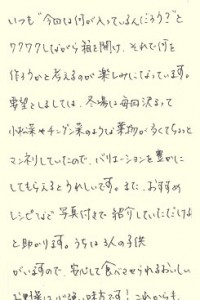 いつも"今回は何が入っているんだろう?"と
ワクワクしながら箱を開け、それで何を
作ろうかと考えるのが楽しみになっています。
要望としましては、冬場は毎回決まって
小松菜やチンゲン菜のような葉物が多くてちょっと
マンネリしていたので、バリエーションを豊かに
してもらえるとうれしいです。また、おすすめ
レシピなど写真付きで紹介していただけると
と助かります。うちは3人の子供
がいますので、安心して食べさせられるおいしい
お野菜は心強い味方です!これからも